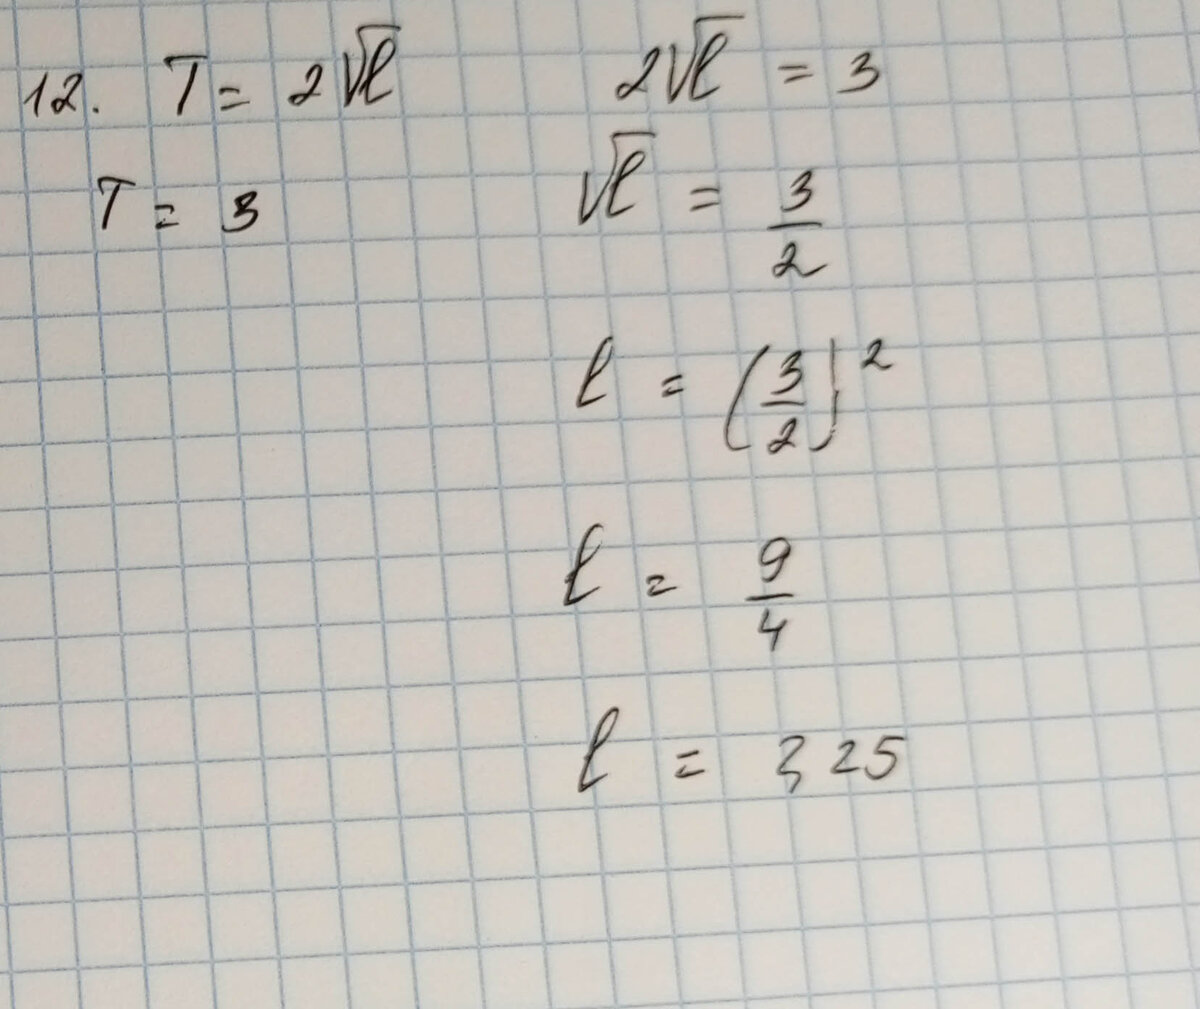 12. T = 2√ℓ
T = 3
2√ℓ = 3
√ℓ = 3/2
ℓ = (3/2)²
ℓ = 9/4
ℓ = 2,25